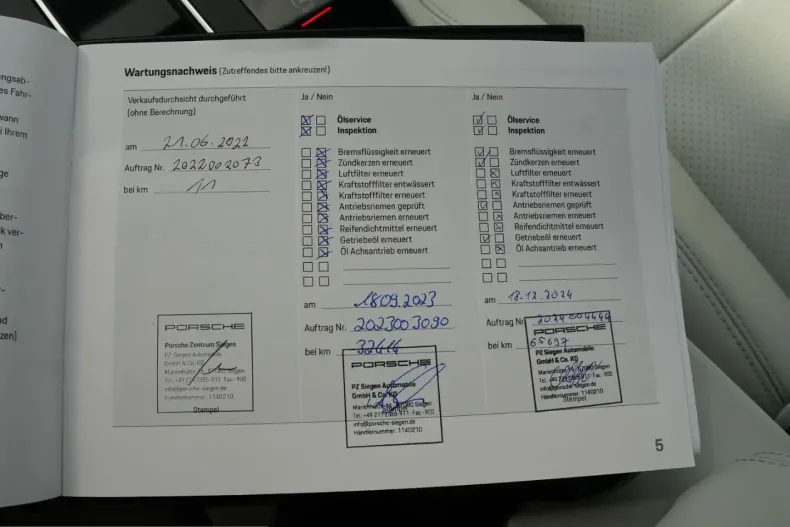 ngsab-
es Fahr-
wann
i Ihrem
ge
ber-
k ver-
n
d
zen)
Wartungsnachweis (Zutreffendes bitte ankreuzen!)
Verkaufsdurchsicht durchgeführt
(ohne Berechnung)
am 21.06.2022
Auftrag Nr. 2022002073
bei km 11
PORSCHE
Porsche Zentrum Siegen
PZ Siegen Automobile
GmbH & Co. KG
Siegen
Fax -900
info@porsche-siegen.de
Händlernummer: 1140210
Stempel
Ja / Nein
Ölservice
Inspektion
Bremsflüssigkeit erneuert
Zündkerzen erneuert
Luftfilter erneuert
Kraftstofffilter entwässert
Kraftstofffilter erneuert
Antriebsriemen geprüft
Antriebsriemen erneuert
Reifendichtmittel erneuert
Getriebeöl erneuert
Öl Achsantrieb erneuert
am 18.09.2023
Auftrag Nr. 2023003090
bei km 32414
PORSCHE
PZ Siegen Automobile
GmbH & Co. KG
Siegen
Stempel
Fax -900
info@porsche-siegen.de
Händlernummer: 1140210
Ja / Nein
Ölservice
Inspektion
Bremsflüssigkeit erneuert
Zündkerzen erneuert
Luftfilter erneuert
Kraftstofffilter entwässert
Kraftstofffilter erneuert
Antriebsriemen geprüft
Antriebsriemen erneuert
Reifendichtmittel erneuert
Getriebeöl erneuert
Öl Achsantrieb erneuert
am 18.12.2024
Auftrag Nr. 2024004444
bei km 65697
PORSCHE
PZ Siegen Automobile
GmbH & Co. KG
Siegen
info@porsche-siegen.de
Stempel
5